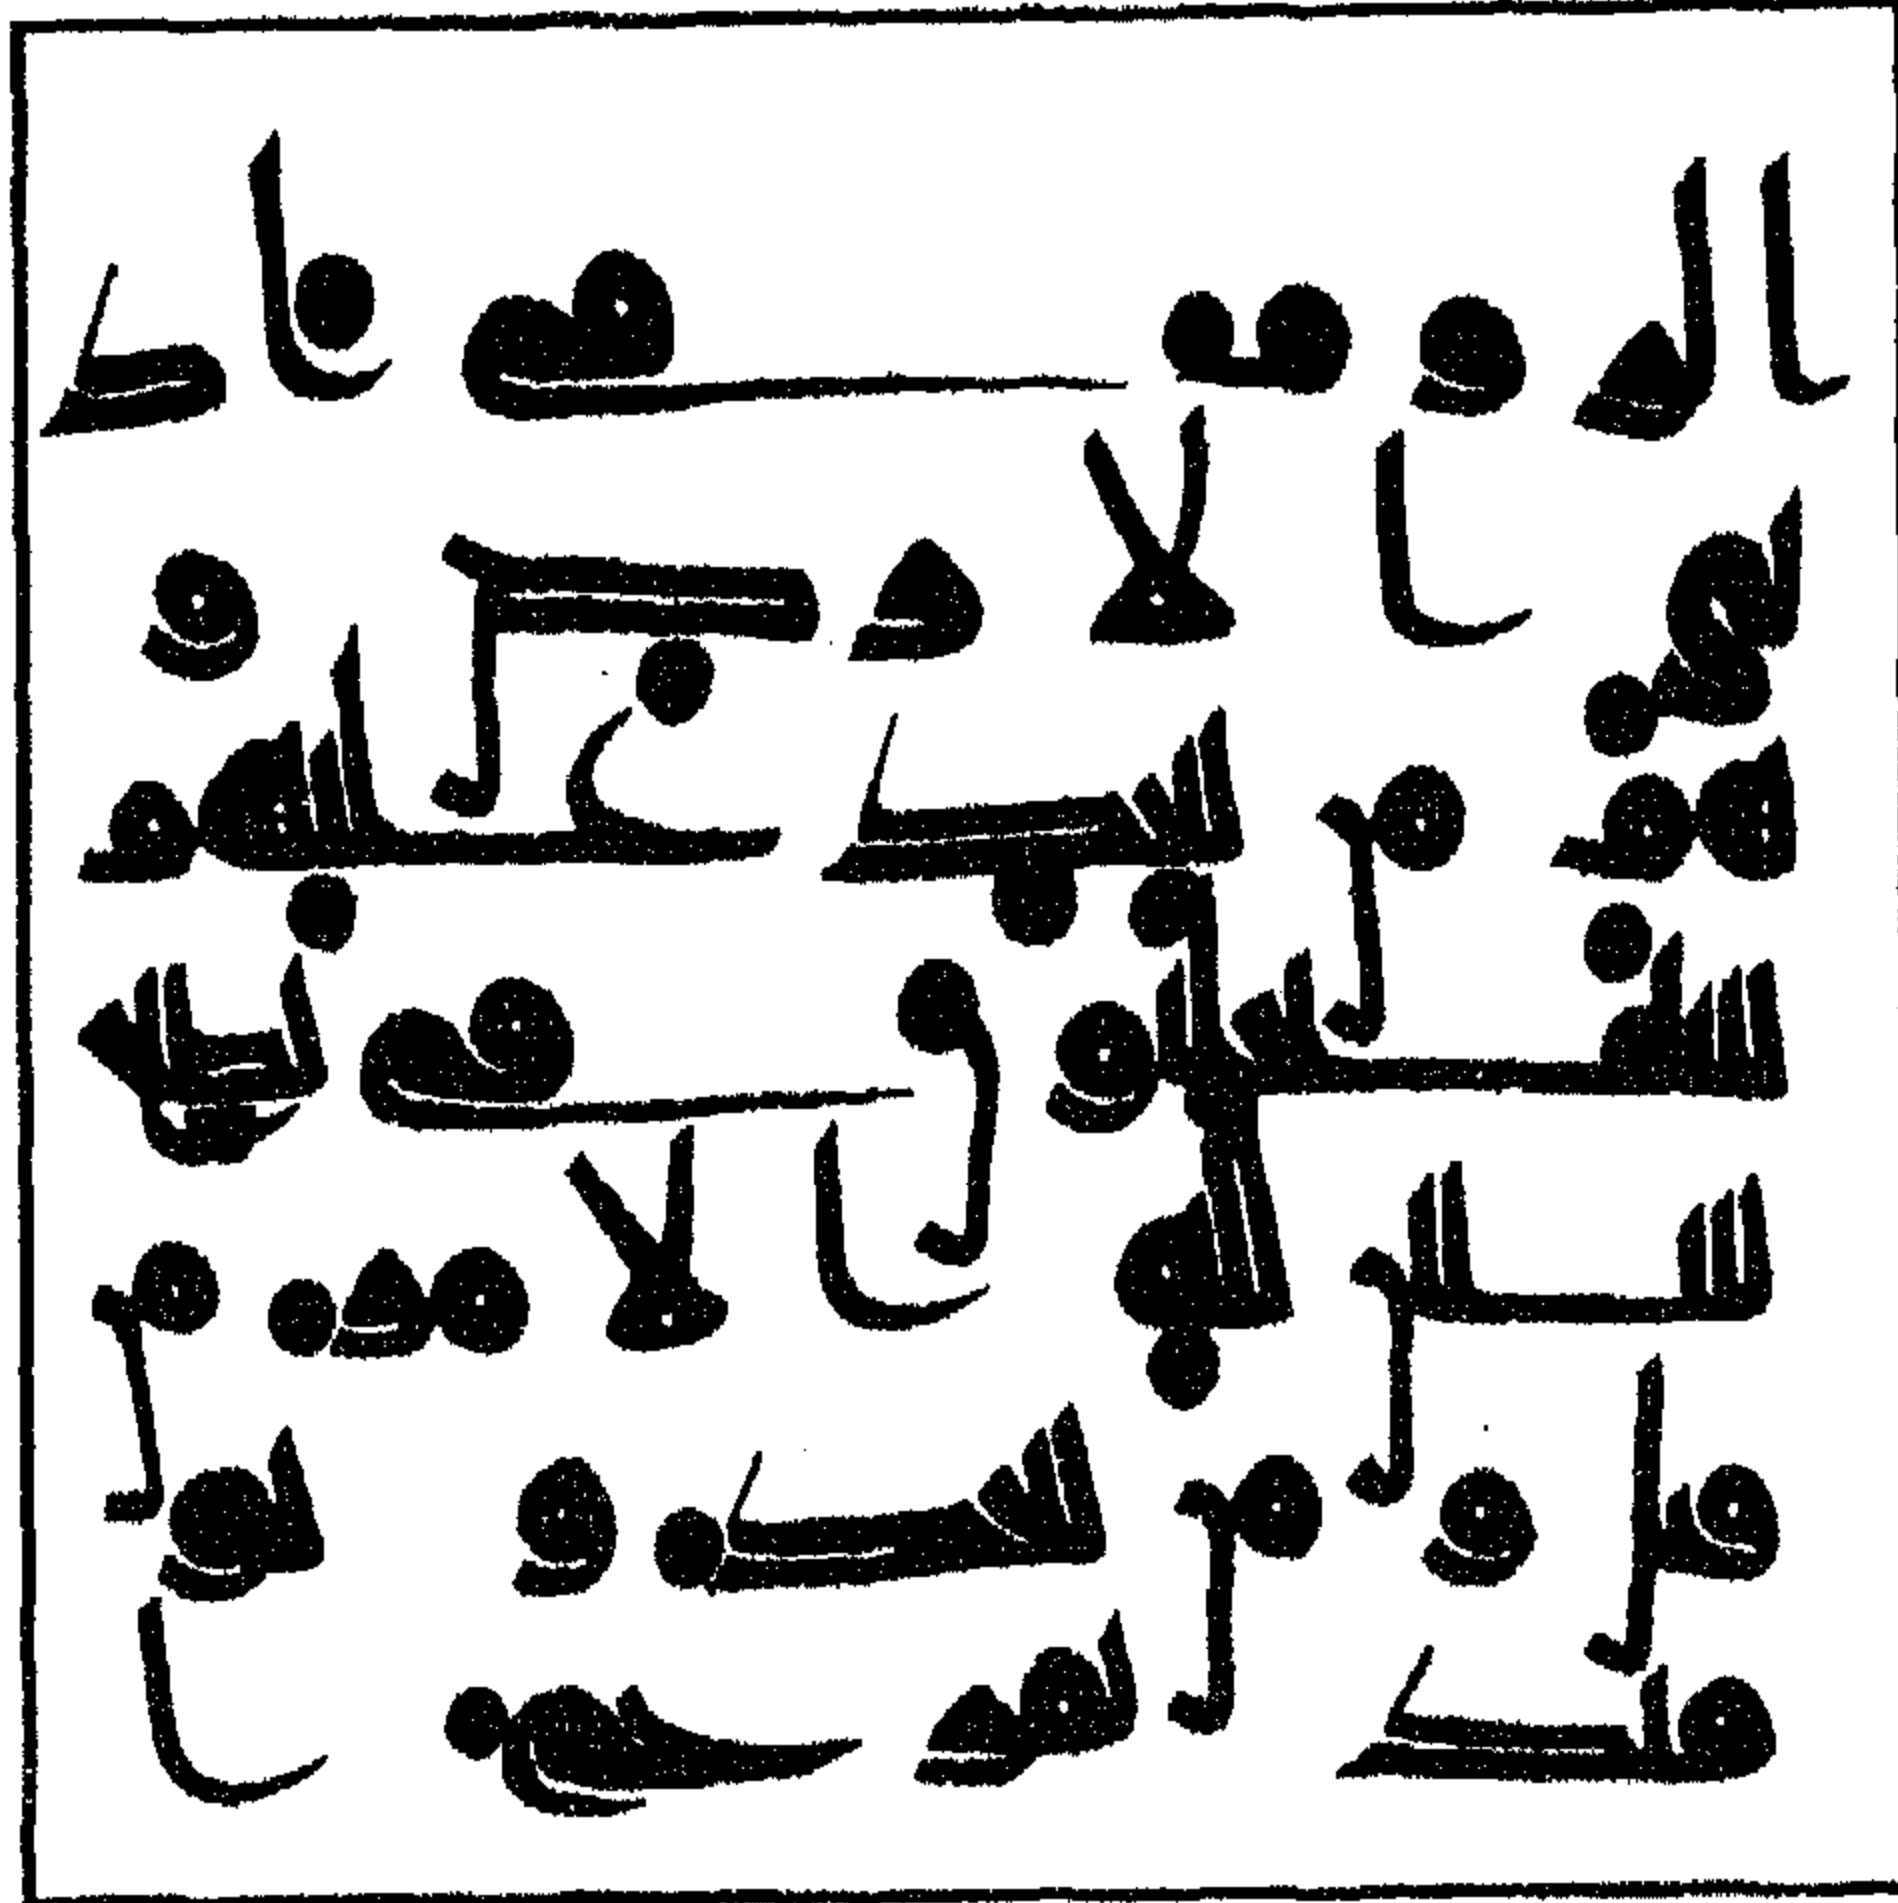 الروم في اد
نى الارض و
هم من بعد غلبهم
سيغلبون في بضع
سنين لله الامر من
قبل و من بعد و يو
مئذ يفرح ا